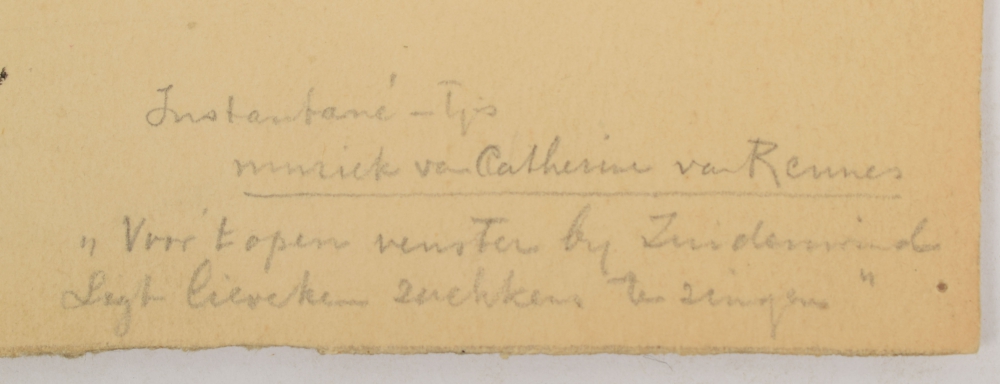 Instantané-Tjes
muziek van Catherine van Rennes
„ Voor 't open venster by Zuidenwind
Legt lieveken zachtkens te zingen "